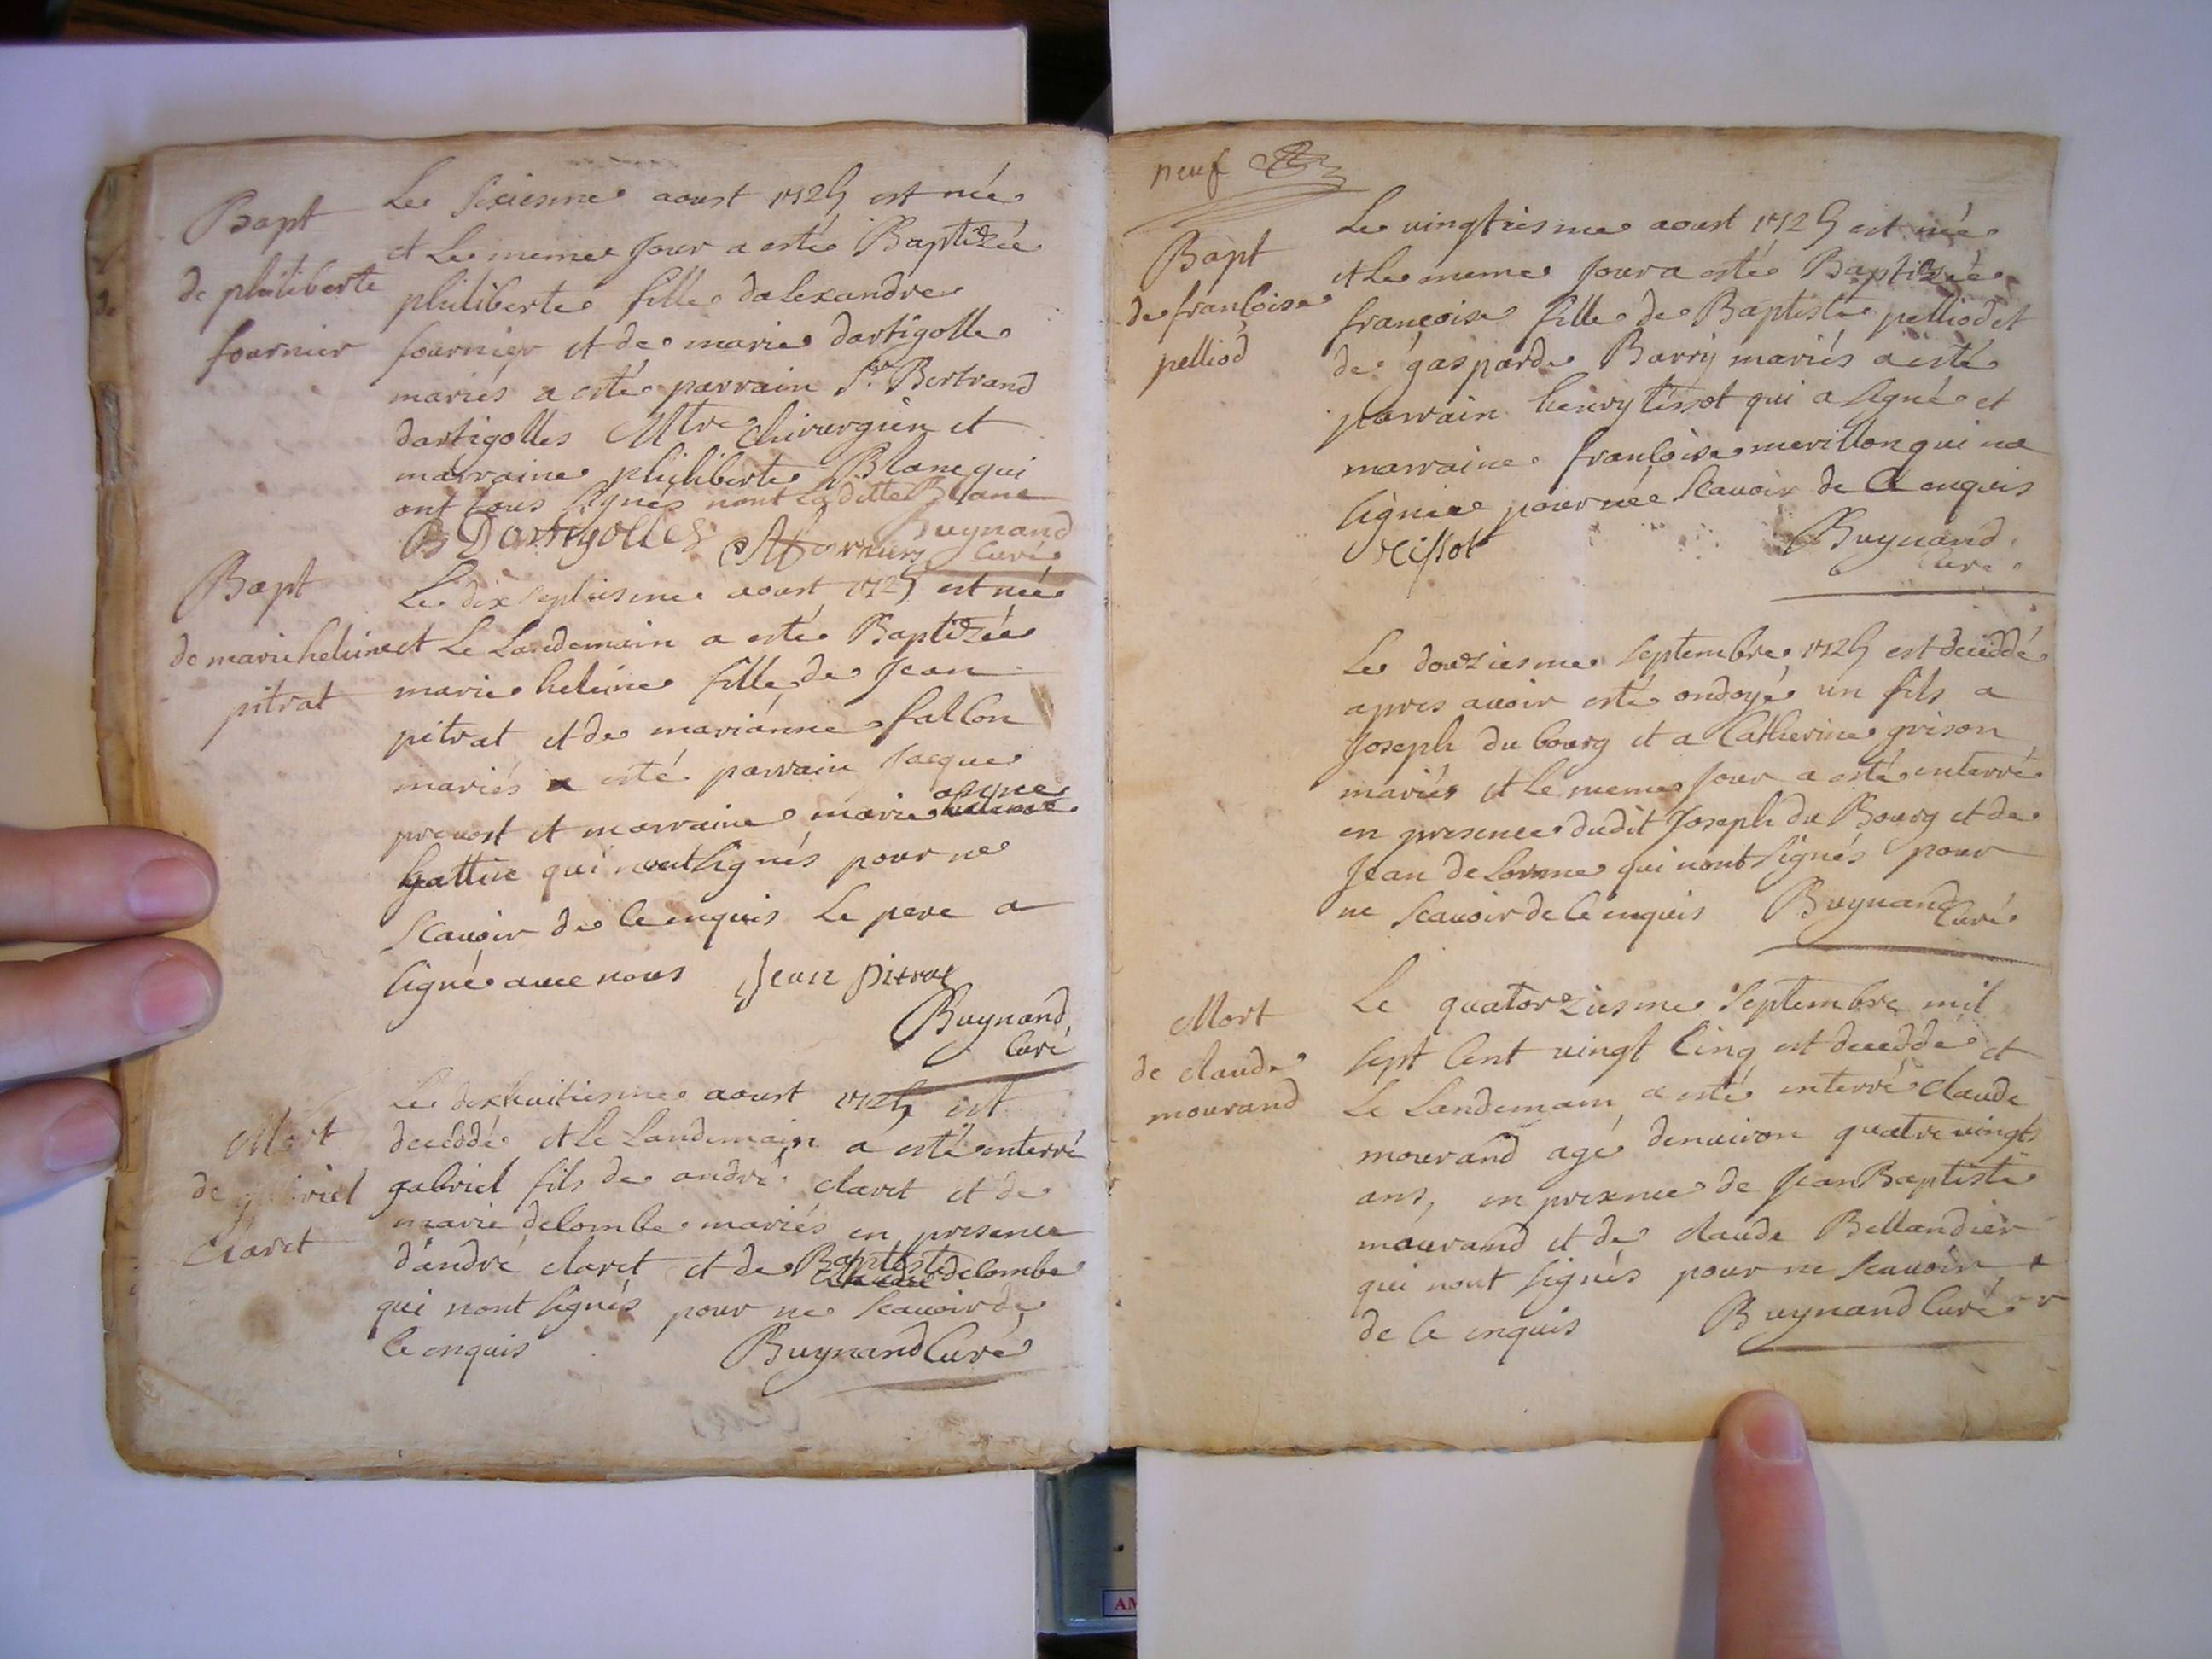 Bapt
de philiberte
fournier
Le sixiesme aoust 1725 est née
et Le meme Jour a esté Baptizée
philiberte fille dalexandre
fournier et de marie dartigolle
mariés a esté parrain Sr Bertrand
dartigolles Mtre chirurgien et
marraine philiberte Blanc qui
ont tous signés nont laditte Blanc
B Dartigolles AFournier Buynand
Curé
Bapt
de marie heleine
pitrat
Le dix septiesme aoust 1725 est née
et Le Landemain a esté Baptizée
marie heleine fille de Jean
pitrat et de marianne falcon
mariés a esté parrain Jacque
prevost et marraine marie anne
gattin qui nont signés pour ne
scavoir de ce enquis Le pere a
signé avec nous Jean pitrat
Buynand
Curé
Mort
de gabriel
Claret
Le dixhuitiesme aoust 1725 est
decéddé et Le Landemain a esté enterré
gabriel fils de andré claret et de
marie delombe mariés en presence
d'andré claret et de Baptiste delombe
qui nont signés pour ne scavoir de
ce enquis Buynand Curé
neuf
Bapt
de francoise
pelliod
Le vingtiesme aoust 1725 est née
et Le meme Jour a esté Baptizée
francoise fille de Baptiste pelliod et
de gasparde Barry mariés a esté
parrain henry tissot qui a signé et
marraine francoise merillon qui na
signée pour née scavoir de Ce enquis
Tissot Buynand
Curé
Le douziesme septembre 1725 est deceddé
apres avoir esté ondoyé un fils a
Joseph du bourg et a Catherine grison
mariés et Le meme Jour a esté enterré
en presence dudit Joseph du Bourg et de
Jean de Lorme qui nont signés pour
ne scavoir de Ce enquis Buynand
Curé
Mort
de claude
mourand
Le quatorziesme septembre mil
sept Cent vingt Cinq est deceddé et
Le Landemain a esté enterré claude
mourand agé denviron quatre vingt
ans, en presence de Jean Baptiste
mourand et de claude Bellandier
qui nont signés pour ne scavoir
de Ce enquis Buynand Curé